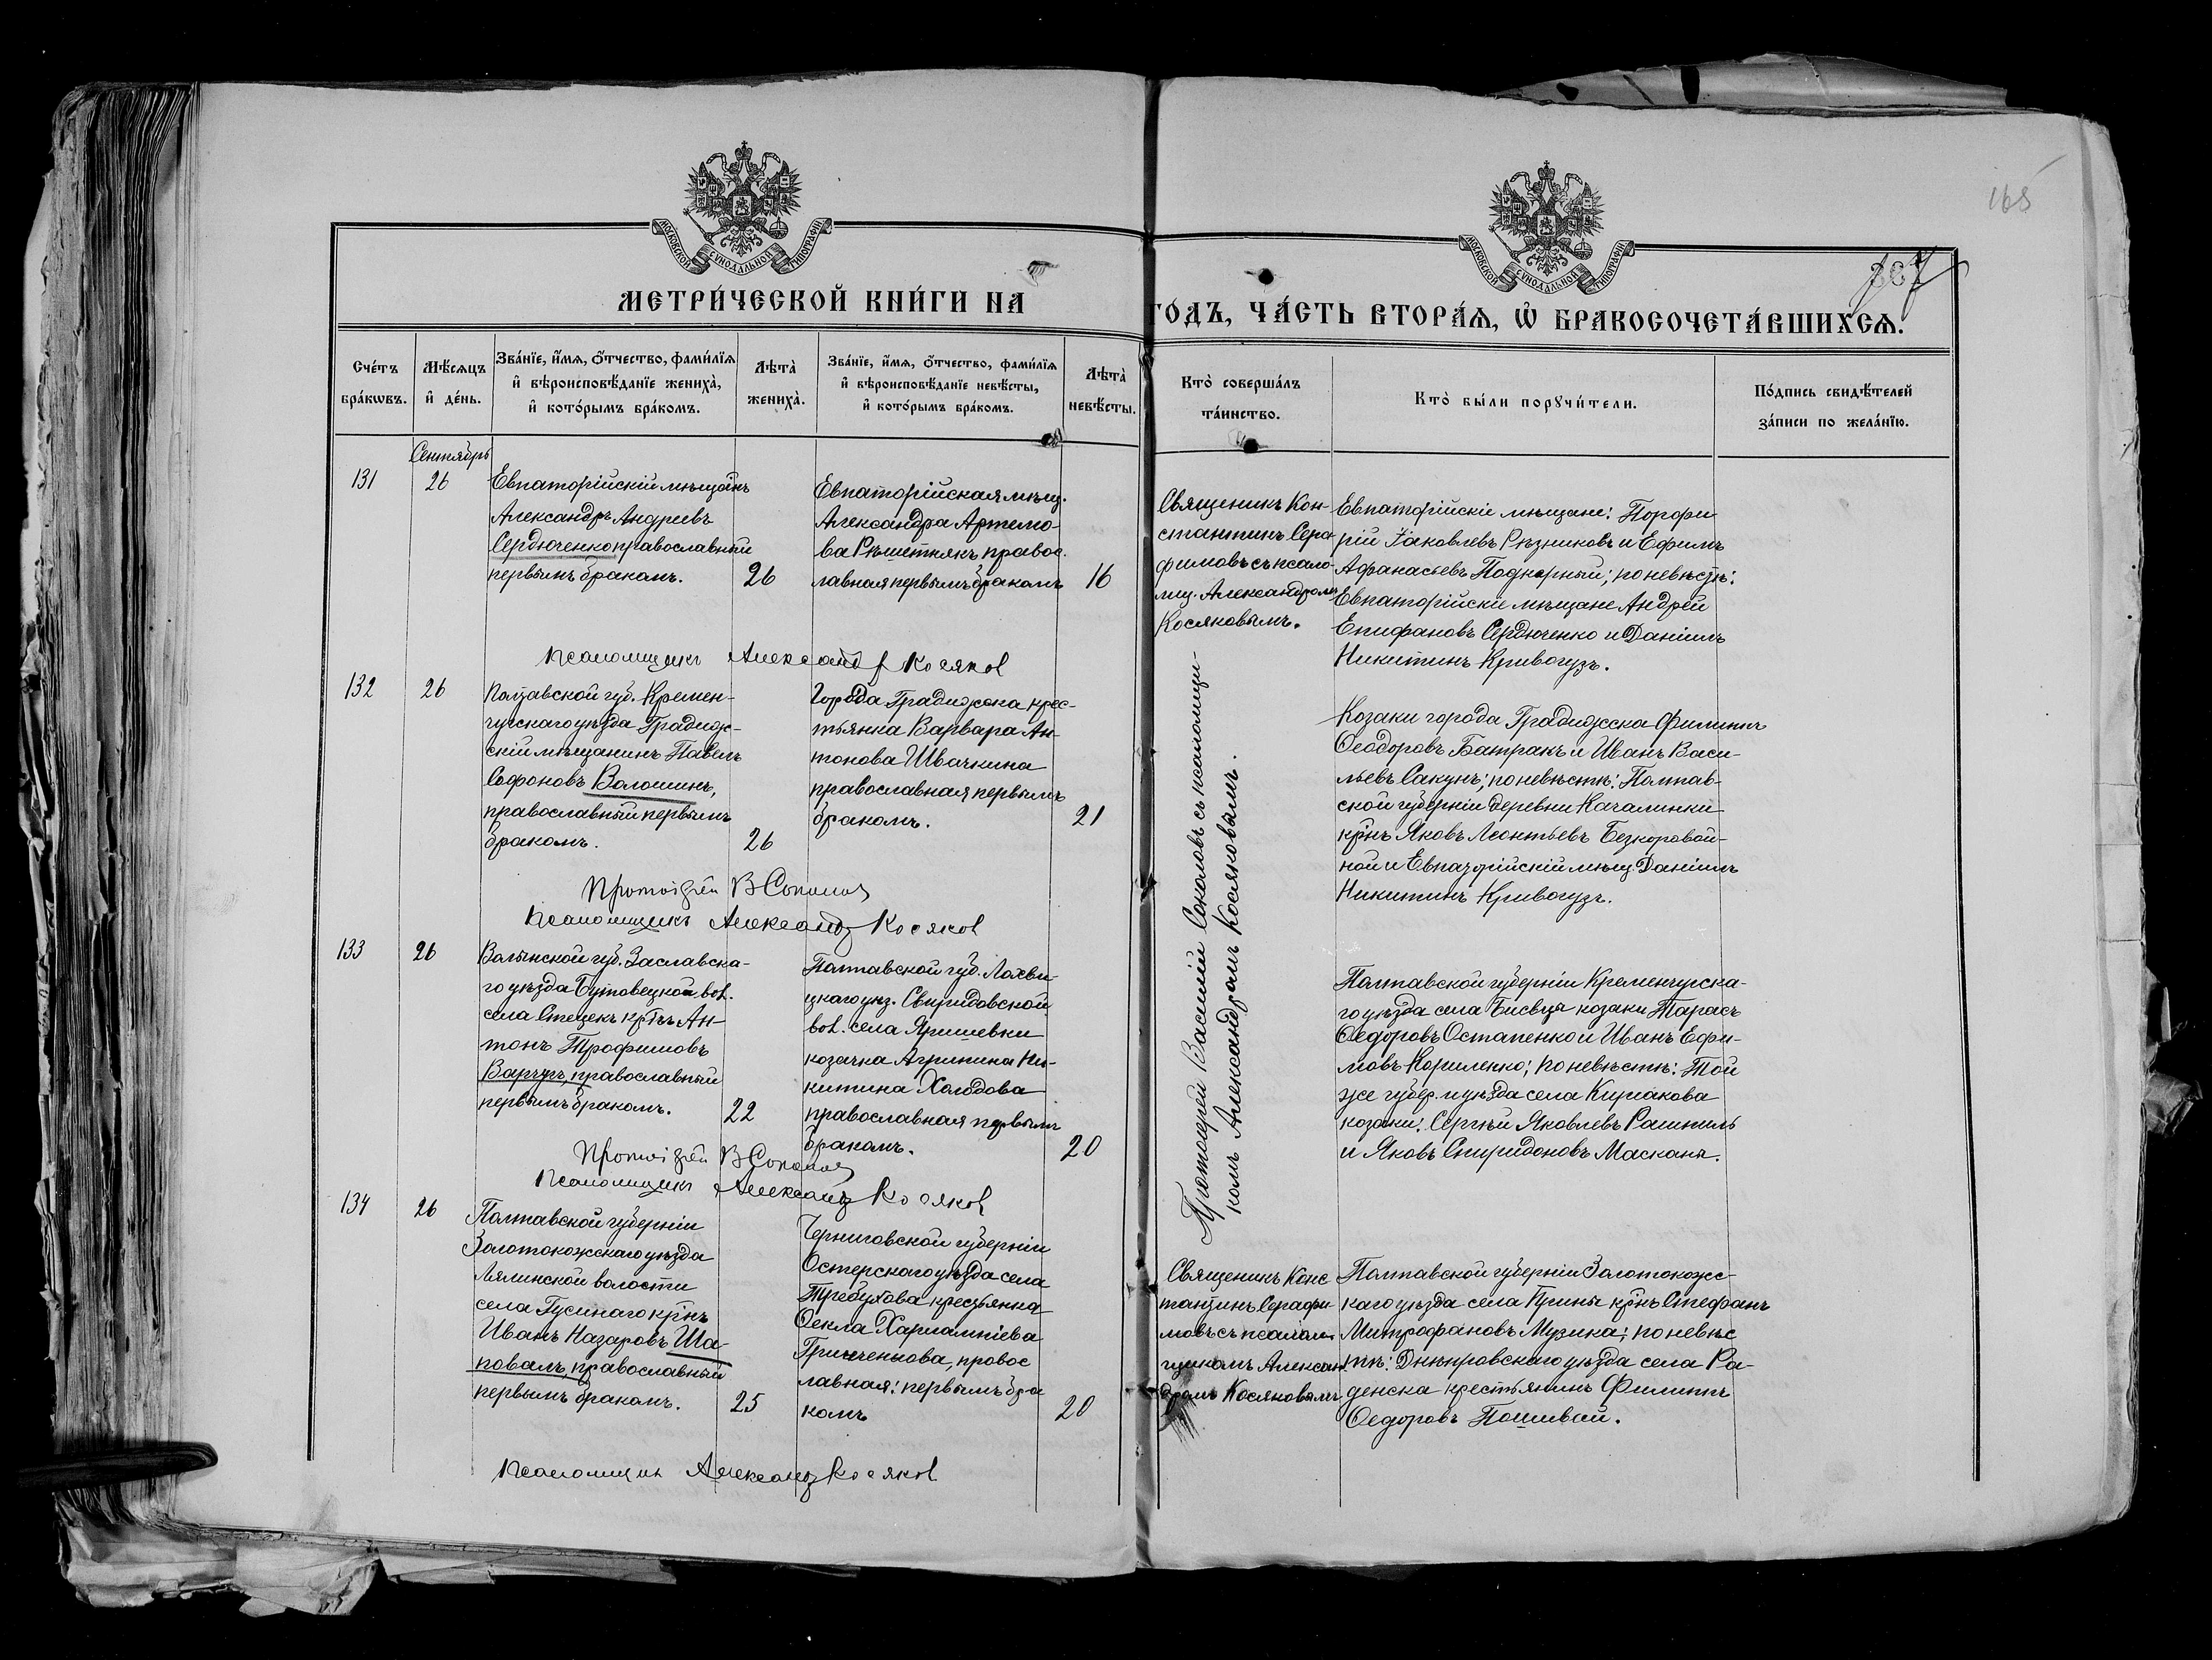 165
207
МОСКОВСКОЙ СѴНОДАЛЬНОЙ ТИПОГРАФІИ
МОСКОВСКОЙ СѴНОДАЛЬНОЙ ТИПОГРАФІИ
МЕТРИ́ЧЕСКОЙ КНИ́ГИ НА
ГОДЪ, ЧА́СТЬ ВТОРА́Ѧ, Ѽ БРАКОСОЧЕТА́ВШИХСѦ.
Сче́тъ бра́кѡвъ.
Мѣ́сѧцъ и҆ де́нь.
Зва́нїе, и҆́мѧ, ѻ҆́тчество, фами́лїѧ
и҆ вѣроисповѣ́данїе жениха̀,
и҆ кото́рымъ бра́комъ.
Лѣта̀ жениха̀.
Зва́нїе, и҆́мѧ, ѻ҆́тчество, фами́лїѧ
и҆ вѣроисповѣ́данїе невѣ́сты,
и҆ кото́рымъ бра́комъ.
Лѣта̀ невѣ́сты.
Кто̀ соверша́лъ
та́инство.
Кто̀ бы́ли порꙋчи́тели.
По́дпись свидѣ́телей
за́писи по жела́нїю.
Сентябрь
131
26
Евпаторійскій мѣщанъ
Александръ Андреевъ
Сердюченко православный
первымъ бракомъ.
26
Евпаторійская мѣщ.
Александра Артемо-
ва Рѣшетнякъ правос.
лавная первымъ бракомъ
16
Священикъ Кон-
стантинъ Сера
фимовъ съ псало-
мщ. Александромъ
Косяковымъ.
Евпаторійскіе мѣщане: Порфи
рій Іаковлевъ Рѣзниковъ и Ефимъ
Афанасьевъ Подкорный; по невѣстѣ:
Евпаторійскіе мѣщане Андрей
Епифановъ Сердюченко и Даніилъ
Никитинъ Кривогузъ.
Псаломщикъ Александръ Косяков
132
26
Полтавской губ. Кремен-
чугскаго уѣзда Градиж-
скій мѣщанинъ Павелъ
Софоновъ Волошинъ,
православный первымъ
бракомъ.
26
Города Градижска крес-
тьянка Варвара Ан-
тонова Швачкина
православная первымъ
бракомъ.
21
Протоіерей Василій Соколовъ съ псаломщи-
комъ Александромъ Косяковымъ.
Козаки города Градижска Филиппъ
Ѳеодоровъ Батракъ и Иванъ Васи-
льевъ Сакунъ; по невѣстѣ: Полтав-
ской губерніи деревни Качалинки
кр̃нъ Яковъ Леонтьевъ Безкоровой-
ной и Евпаторійскій мѣщ. Даніилъ
Никитинъ Кривогузъ.
Протоіерей В Соколов
Псаломщикъ Александр Косяков
133
26
Волынской губ. Заславска-
го уѣзда Бутовецкой вол.
села Стецекъ кр̃нъ Ан-
тонъ Трофимовъ
Варчукъ, православный
первымъ бракомъ.
22
Полтавской губ. Лохви-
цкаго уѣз. Свиридовской
вол. села Яришевки
козачка Агрипина Ни-
китина Холодова
православная первымъ
бракомъ.
20
Полтавской губерніи Кременчугска-
го уѣзда села козаки Тарасъ
Ѳедоровъ Остапенко и Иванъ Ефи-
мовъ Кориленко; по невѣстѣ: Той
же губер. и уѣзда села Кирлакова
козаки: Сергѣй Яковлевъ Рашпиль
и Яковъ Спиридоновъ Маскана.
Протоіерей В Соколов
Псаломщикъ Александр Косяков
134
26
Полтавской губерніи
Золотоножскаго уѣзда
Лялинской волости
села Гусинаго кр̃нъ
Иванъ Назаровъ Ша-
повалъ, православный
первымъ бракомъ.
25
Черниговской губерніи
Остерскаго уѣзда села
Требухова крестьянка
Ѳекла Харлампіева
Гринченкова, провос
лавная: первымъ бра
комъ
20
Священикъ Конс
тантинъ Серафи-
мовъ съ псалом
щикомъ Алексан
дромъ Косяковымъ
Полтавской губерніи Золотонож-
каго уѣзда села кр̃нъ Стефанъ
Митрофановъ Музика; по невѣс
тѣ: Днѣпровскаго уѣзда села Ра-
денска крестьянинъ Филиппъ
Ѳедоровъ Пошивай.
Псаломщикъ Александр Косяков